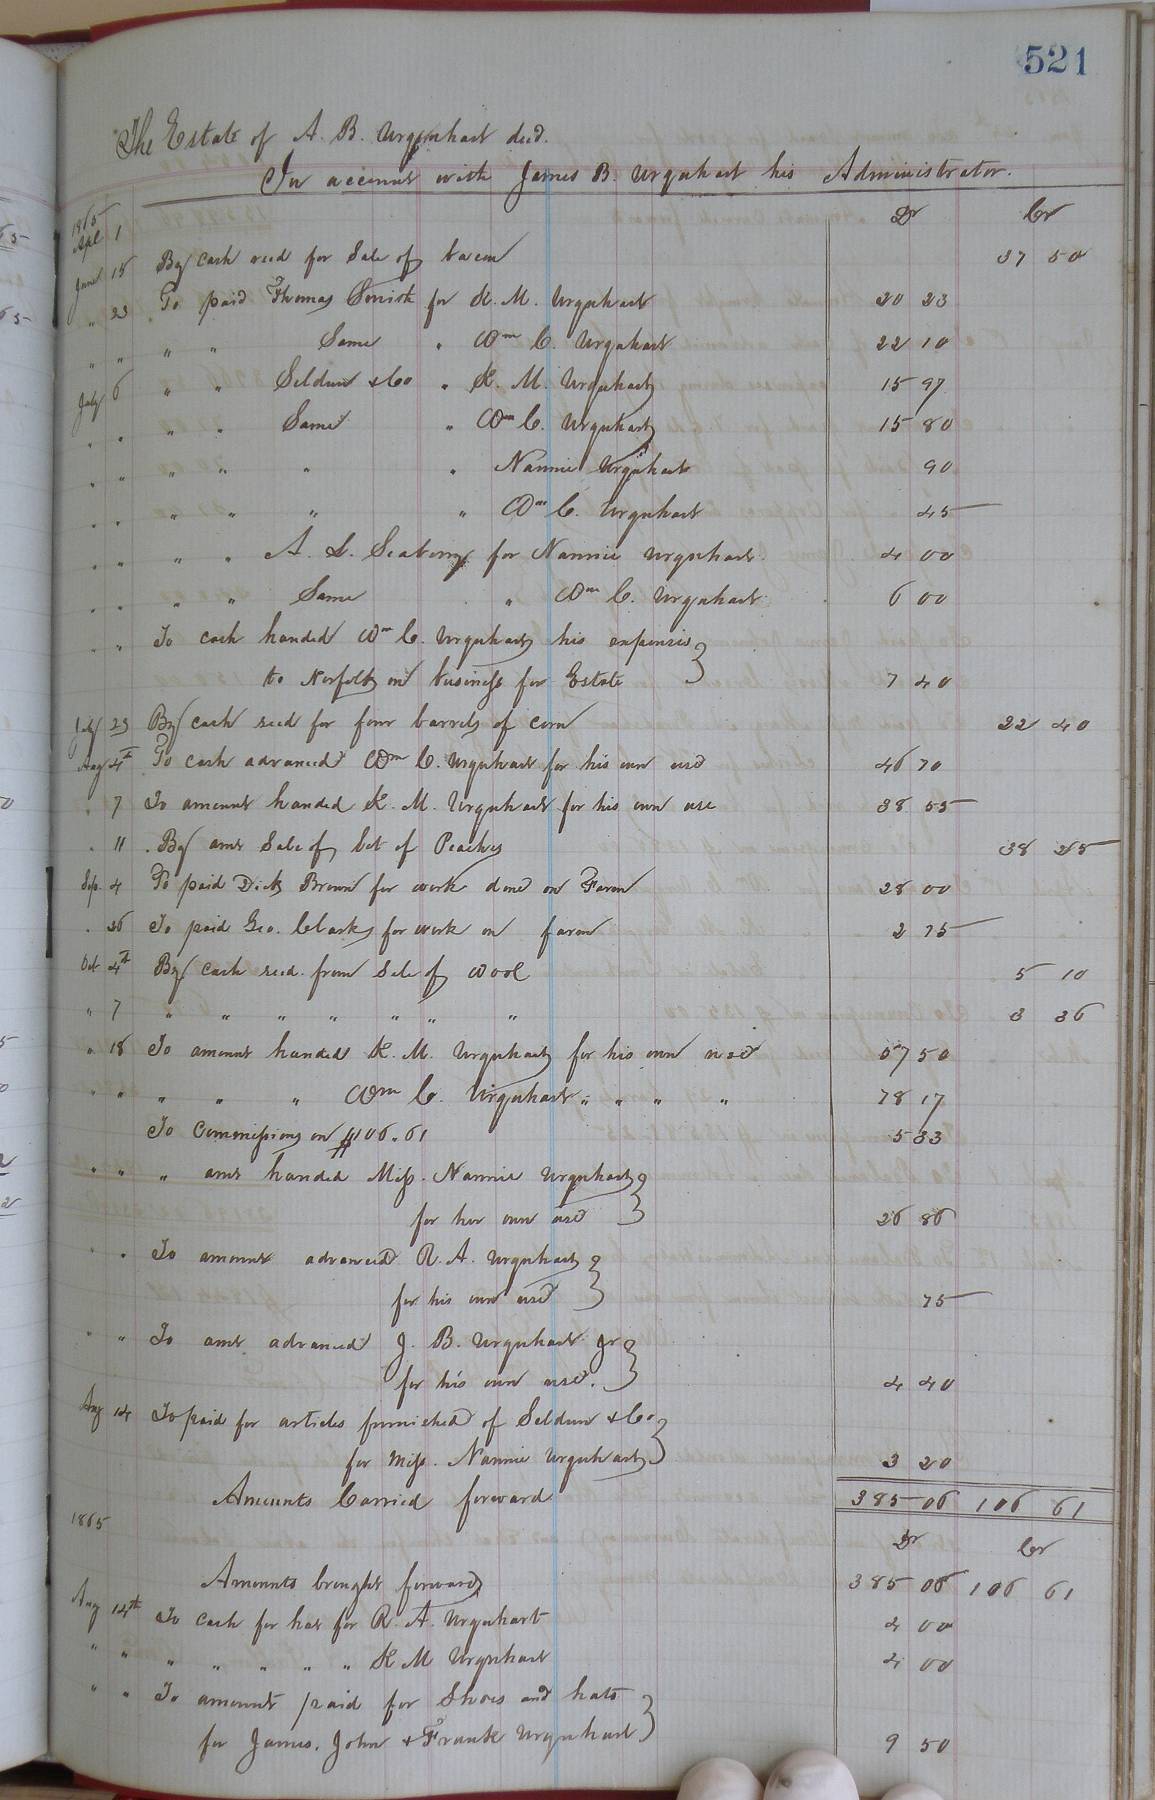 521
The Estate of A. B. Urquhart decd.
In account with James B. Urquhart his Administrator.
1865 Dr Cr
Apl 1 By cash recd for Sale of bacon 37 50
June 15 To paid Thomas Smith for K. M. Urquhart 20 23
" 23 " " Same " Wm C. Urquhart 22 10
" " " " Seldner & Co " K. M. Urquhart 15 97
July 6 " " Same " Wm C. Urquhart 15 80
" " " " " " Nannie Urquhart 90
" " " " " " Wm C. Urquhart 45
" " " " A. S. for Nannie Urquhart 4 00
" " " " Same " Wm C. Urquhart 6 00
" " To cash handed Wm C. Urquhart his expenses
to Norfolk on business for Estate 7 40
July 23 By cash recd for four barrels of corn 22 40
Aug 4th To cash advanced Wm C. Urquhart for his own use 46 70
" 7 To amount handed K. M. Urquhart for his own use 38 55
" 11 By amt Sale of lot of Peaches 38 25
Sep. 4 To paid Dick Brown for work done on Farm 28 00
" 26 To paid Geo. Clark for work on farm 2 75
Oct 4th By cash recd. from Sale of wool 5 10
" 7 " " " " " " " 3 36
" 18 To amount handed K. M. Urquhart for his own use 57 50
" " " " " Wm C. Urquhart " " " " 78 17
To Commissions on $106.61 5 33
" " " amt handed Miss. Nannie Urquhart
for her own use 26 86
" " To amount advanced R. A. Urquhart
for his own use 75
" " To amt advanced J. B. Urquhart Jr
for his own use. 4 40
Aug 14 To paid for articles furnished of Seldner & Co
for Miss. Nannie Urquhart 3 20
Amounts Carried forward 385 06 106 61
1865 Dr Cr
Amounts brought forward 385 06 106 61
Aug 14th To cash for hat for R. A. Urquhart 4 00
" " " " " " " K M Urquhart 4 00
" " To amount paid for Shoes and hats
for James, John & Frank Urquhart 9 50